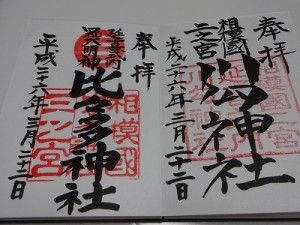 奉拝
相模國
二之宮
川勾神社
平成二十六年三月二十二日
奉拝
延喜式内
冠大明神
比々多神社
相模國
三之宮
平成二十六年三月二十二日